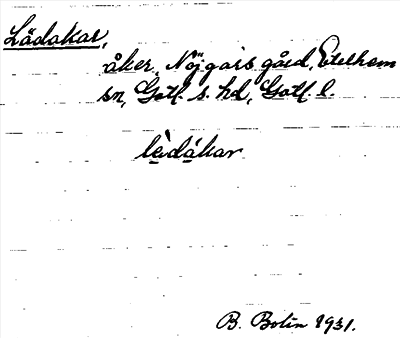 Lådakar,
åker, Nöjgårs gård, Etelhem
sn, Gotl. s. hd, Gotl. l.
lèdákar
B. Bolin 1931.